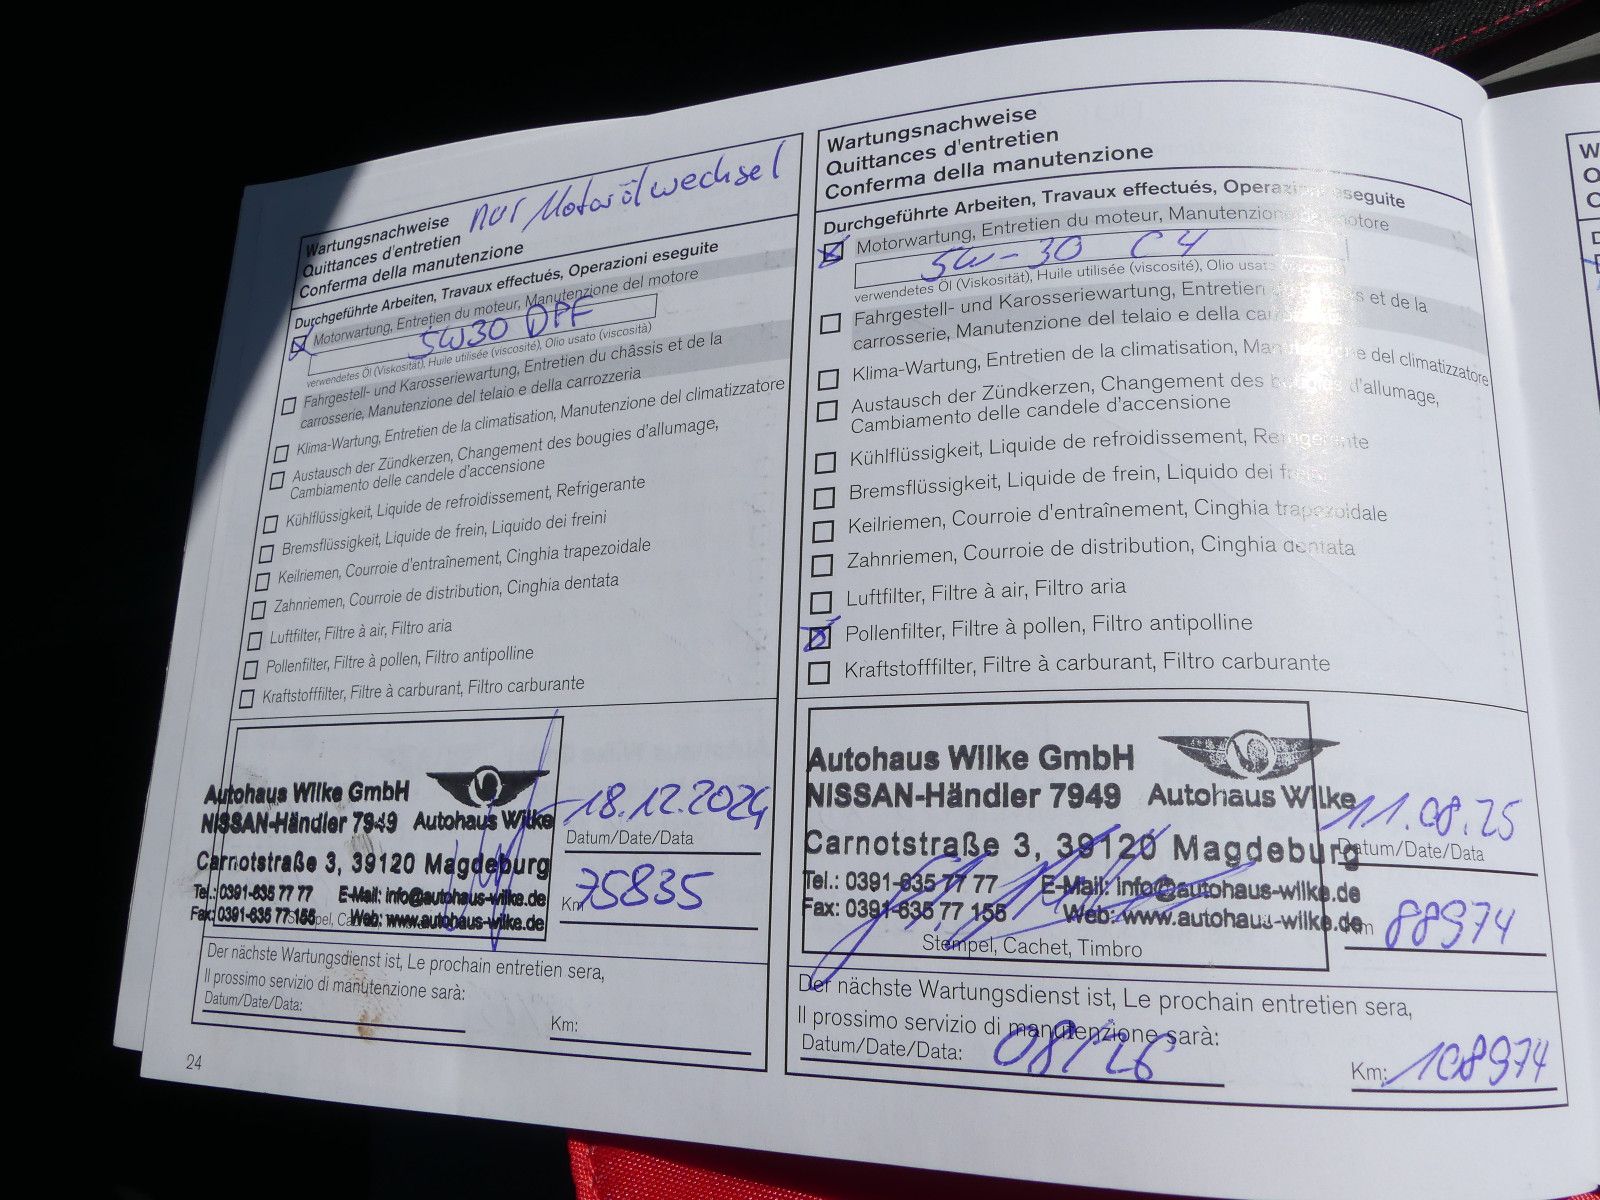 Wartungsnachweise
Quittances d'entretien
Conferma della manutenzione
nur Motorölwechsel
Durchgeführte Arbeiten, Travaux effectués, Operazioni eseguite
Motorwartung, Entretien du moteur, Manutenzione del motore
5W30 DPF
verwendetes Öl (Viskosität), Huile utilisée (viscosité), Olio usato (viscosità)
Fahrgestell- und Karosseriewartung, Entretien du châssis et de la
carrosserie, Manutenzione del telaio e della carrozzeria
Klima-Wartung, Entretien de la climatisation, Manutenzione del climatizzatore
Austausch der Zündkerzen, Changement des bougies d'allumage,
Cambiamento delle candele d'accensione
Kühlflüssigkeit, Liquide de refroidissement, Refrigerante
Bremsflüssigkeit, Liquide de frein, Liquido dei freini
Keilriemen, Courroie d'entraînement, Cinghia trapezoidale
Zahnriemen, Courroie de distribution, Cinghia dentata
Luftfilter, Filtre à air, Filtro aria
Pollenfilter, Filtre à pollen, Filtro antipolline
Kraftstofffilter, Filtre à carburant, Filtro carburante
Autohaus Wilke GmbH
NISSAN-Händler 7949 Autohaus Wilke
Carnotstraße 3, 39120 Magdeburg
Tel.: 0391-635 77 77 E-Mail: info@autohaus-wilke.de
Fax: 0391-635 77 155 Web: www.autohaus-wilke.de
18.12.2024
Datum/Date/Data
Km 75835
Der nächste Wartungsdienst ist, Le prochain entretien sera,
Il prossimo servizio di manutenzione sarà:
Datum/Date/Data:
Km:
24
Wartungsnachweise
Quittances d'entretien
Conferma della manutenzione
Durchgeführte Arbeiten, Travaux effectués, Operazioni eseguite
Motorwartung, Entretien du moteur, Manutenzione del motore
5W-30 C4
verwendetes Öl (Viskosität), Huile utilisée (viscosité), Olio usato
Fahrgestell- und Karosseriewartung, Entretien du châssis et de la
carrosserie, Manutenzione del telaio e della
Klima-Wartung, Entretien de la climatisation, Manutenzione del climatizzatore
Austausch der Zündkerzen, Changement des bougies d'allumage,
Cambiamento delle candele d'accensione
Kühlflüssigkeit, Liquide de refroidissement, Refrigerante
Bremsflüssigkeit, Liquide de frein, Liquido dei freini
Keilriemen, Courroie d'entraînement, Cinghia trapezoidale
Zahnriemen, Courroie de distribution, Cinghia dentata
Luftfilter, Filtre à air, Filtro aria
Pollenfilter, Filtre à pollen, Filtro antipolline
Kraftstofffilter, Filtre à carburant, Filtro carburante
Autohaus Wilke GmbH
NISSAN-Händler 7949 Autohaus Wilke
Carnotstraße 3, 39120 Magdeburg
Tel.: 0391-635 77 77 E-Mail: info@autohaus-wilke.de
Fax: 0391-635 77 155 Web: www.autohaus-wilke.de
Stempel, Cachet, Timbro
11.08.25
Datum/Date/Data
88974
Der nächste Wartungsdienst ist, Le prochain entretien sera,
Il prossimo servizio di manutenzione sarà:
Datum/Date/Data: 08/26
Km: 108974